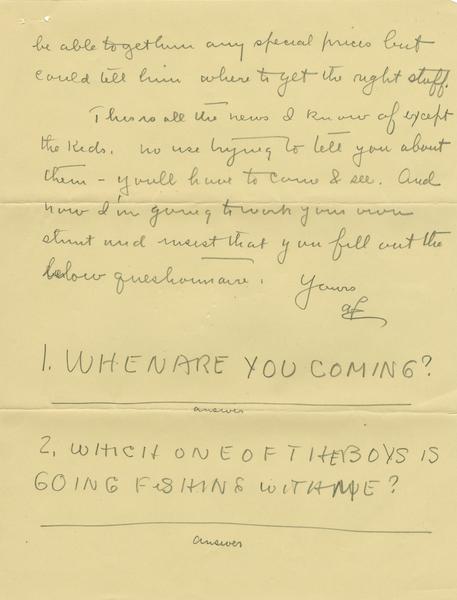 be able to get him any special prices but
could tell him where to get the right stuff.
This is all the news I know of except
the kids. no use trying to tell you about
them - you'll have to come & see. And
now I'm going to work your own
stunt and insist that you fill out the
below questionnaire.
Yours
af
1. WHEN ARE YOU COMING?
answer
2. WHICH ONE OF THE BOYS IS
GOING FISHING WITH ME?
answer